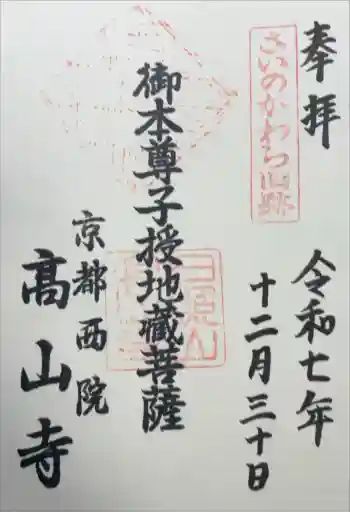 奉拝
さいのかわら旧跡
令和七年
十二月三十日
御本尊子授地蔵菩薩
京都西院
高山寺